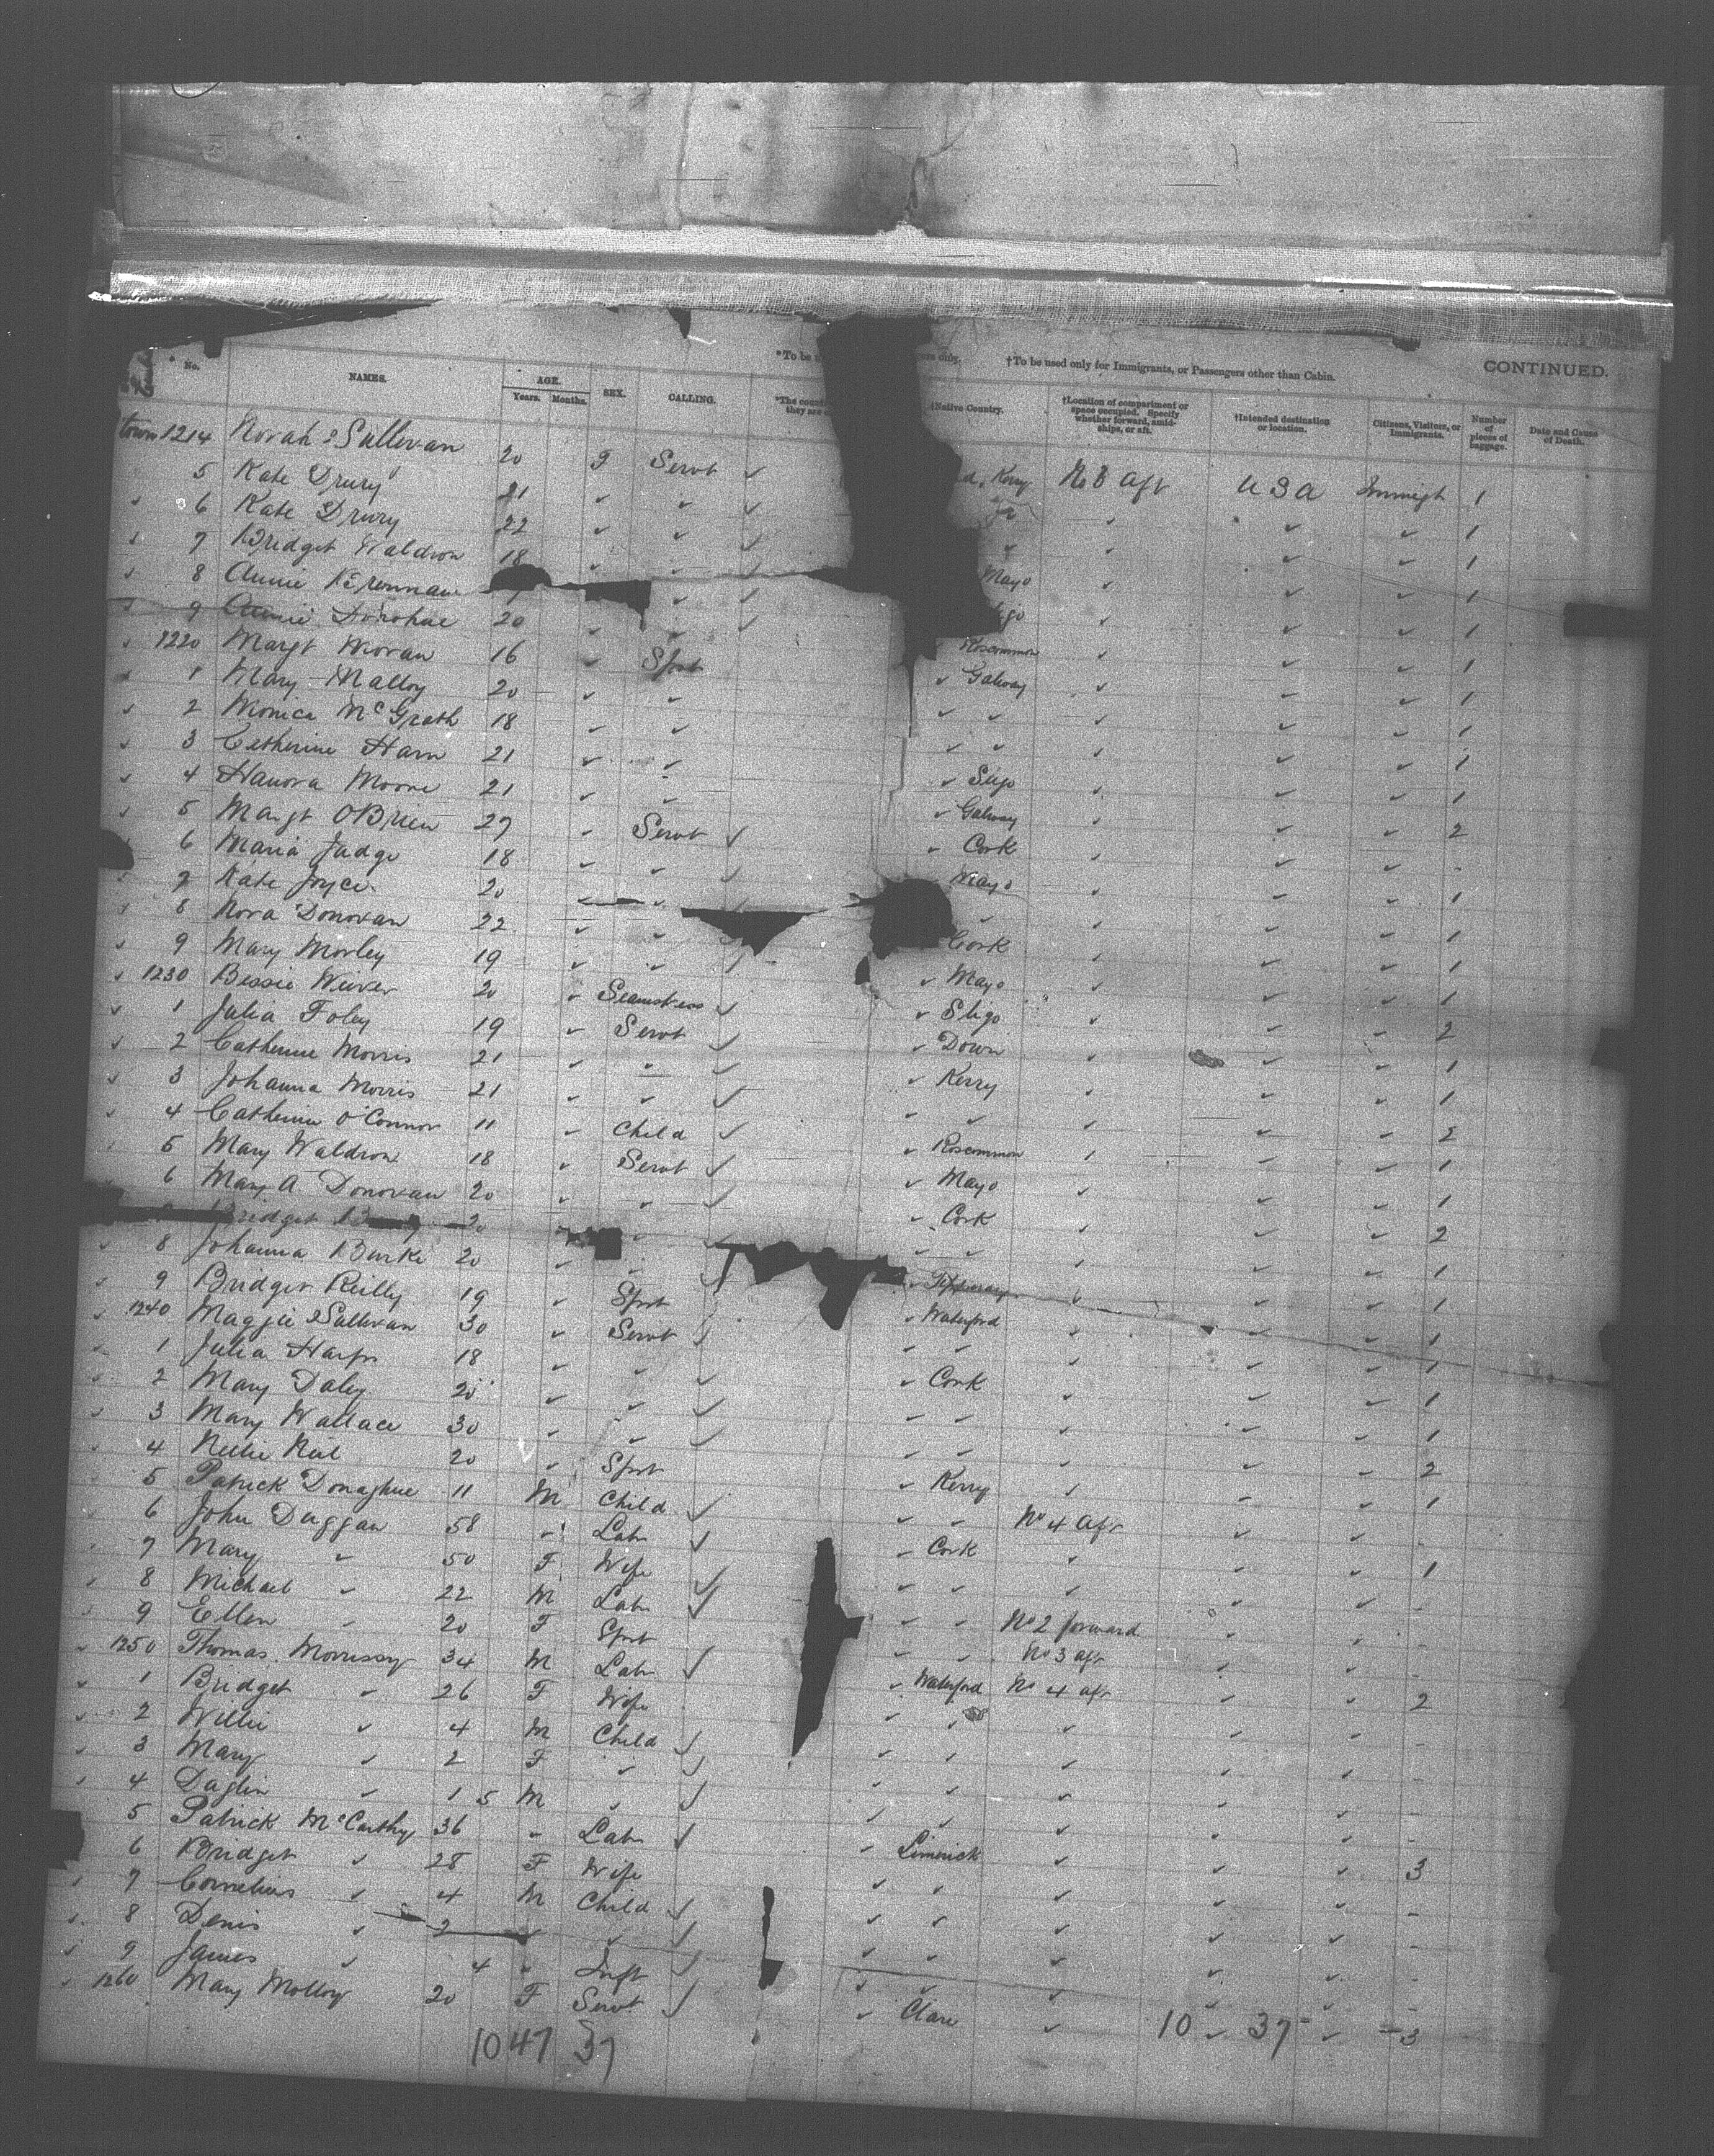 *To be
†To be used only for Immigrants, or Passengers other than Cabin.
CONTINUED.
No. NAMES. AGE. Years. Months. SEX. CALLING. †Native Country. †Location of compartment or space occupied. Specify whether forward, amidships, or aft. †Intended destination or location. Citizens, Visitors, or Immigrants. Number of pieces of baggage. Date and Cause of Death.
town 1214 Norah Sullivan 20 F Servt ✓ d, Kerry aft U S A Immigt 1
5 Kate Drury 21 ✓ ✓ ✓ ✓ ✓ ✓ 1
6 Kate Drury 22 ✓ ✓ ✓ ✓ ✓ ✓ ✓ 1
7 Bridget Waldron 18 ✓ ✓ ✓ Mayo ✓ ✓ ✓ 1
8 Annie ✓ ✓ ✓ ✓ ✓ 1
9 Annie Donohue 20 ✓ ✓ ✓ Roscommon ✓ ✓ ✓ 1
1220 Margt Moran 16 ✓ Spst ✓ Galway ✓ ✓ ✓ 1
1 Mary Malloy 20 ✓ ✓ ✓ ✓ ✓ ✓ ✓ 1
2 Monica McGrath 18 ✓ ✓ ✓ ✓ ✓ ✓ ✓ 1
3 Catherine Harn 21 ✓ ✓ ✓ Sligo ✓ ✓ ✓ 1
4 Hanora Moore 21 ✓ ✓ ✓ Galway ✓ ✓ ✓ 2
5 Margt OBrien 27 ✓ Servt ✓ ✓ Cork ✓ ✓ ✓ -
6 Maria Judge 18 ✓ ✓ ✓ Mayo ✓ ✓ ✓ 1
7 Kate Joyce 20 ✓ ✓ ✓ ✓ ✓ ✓ ✓ 1
8 Nora Donovan 22 ✓ ✓ ✓ Cork ✓ ✓ ✓ 1
9 Mary Morley 19 ✓ ✓ ✓ ✓ Mayo ✓ ✓ ✓ 1
1230 Bessie 20 ✓ Seamstress ✓ ✓ Sligo ✓ ✓ ✓ 2
1 Julia Foley 19 ✓ Servt ✓ ✓ Down ✓ ✓ ✓ 1
2 Catherine Morris 21 ✓ ✓ ✓ ✓ Kerry ✓ ✓ ✓ 1
3 Johanna Morris 21 ✓ ✓ ✓ ✓ ✓ ✓ ✓ ✓ 2
4 Catherine O'Connor 11 ✓ Child ✓ ✓ Roscommon ✓ ✓ ✓ 1
5 Mary Waldron 18 ✓ Servt ✓ ✓ Mayo ✓ ✓ ✓ 1
6 Mary A. Donovan 20 ✓ ✓ ✓ ✓ Cork ✓ ✓ ✓ 2
Bridget 20 ✓ ✓ ✓ ✓ ✓ ✓ ✓ 1
8 Johanna Burke 20 ✓ ✓ ✓ ✓ Tipperary ✓ ✓ ✓ 1
9 Bridget Reilly 19 ✓ Spst ✓ Waterford ✓ ✓ ✓ 1
1240 Maggie Sullivan 30 ✓ Servt ✓ ✓ ✓ ✓ ✓ ✓ 1
1 Julia 18 ✓ ✓ ✓ ✓ Cork ✓ ✓ ✓ 1
2 Mary Daley 20 ✓ ✓ ✓ ✓ ✓ ✓ ✓ ✓ 1
3 Mary Wallace 30 ✓ ✓ ✓ ✓ ✓ ✓ ✓ ✓ 2
4 Nellie 20 ✓ Spst ✓ Kerry ✓ ✓ ✓ 1
5 Patrick Donaghue 11 M Child ✓ ✓ ✓ No 4 aft ✓ ✓ -
6 John Duggan 58 ✓ Labr ✓ ✓ Cork ✓ ✓ ✓ 1
7 Mary ✓ 50 F Wife ✓ ✓ ✓ ✓ ✓ ✓ -
8 Michael ✓ 22 M Labr ✓ ✓ ✓ No 2 forward ✓ ✓ -
9 Ellen ✓ 20 F Spst ✓ ✓ No 3 aft ✓ ✓ -
1250 Thomas Morrissy 34 M Labr ✓ ✓ Waterford No 4 aft ✓ ✓ 2
1 Bridget ✓ 26 F Wife ✓ ✓ ✓ ✓ ✓ -
2 Willie ✓ 4 M Child ✓ ✓ ✓ ✓ ✓ ✓ -
3 Mary ✓ 2 F ✓ ✓ ✓ ✓ ✓ ✓ ✓ -
4 ✓ 1 5 M ✓ ✓ ✓ ✓ ✓ ✓ ✓ -
5 Patrick McCarthy 36 ✓ Labr ✓ ✓ Limerick ✓ ✓ ✓ 3
6 Bridget ✓ 28 F Wife ✓ ✓ ✓ ✓ ✓ -
7 Cornelius ✓ 4 M Child ✓ ✓ ✓ ✓ ✓ ✓ -
8 Denis ✓ 2 ✓ ✓ ✓ ✓ ✓ ✓ ✓ ✓ -
9 James ✓ 4 ✓ Inft ✓ ✓ ✓ ✓ ✓ ✓ -
1260 Mary Molloy 20 F Servt ✓ ✓ Clare ✓ ✓ ✓ 3
1047 37
10 37